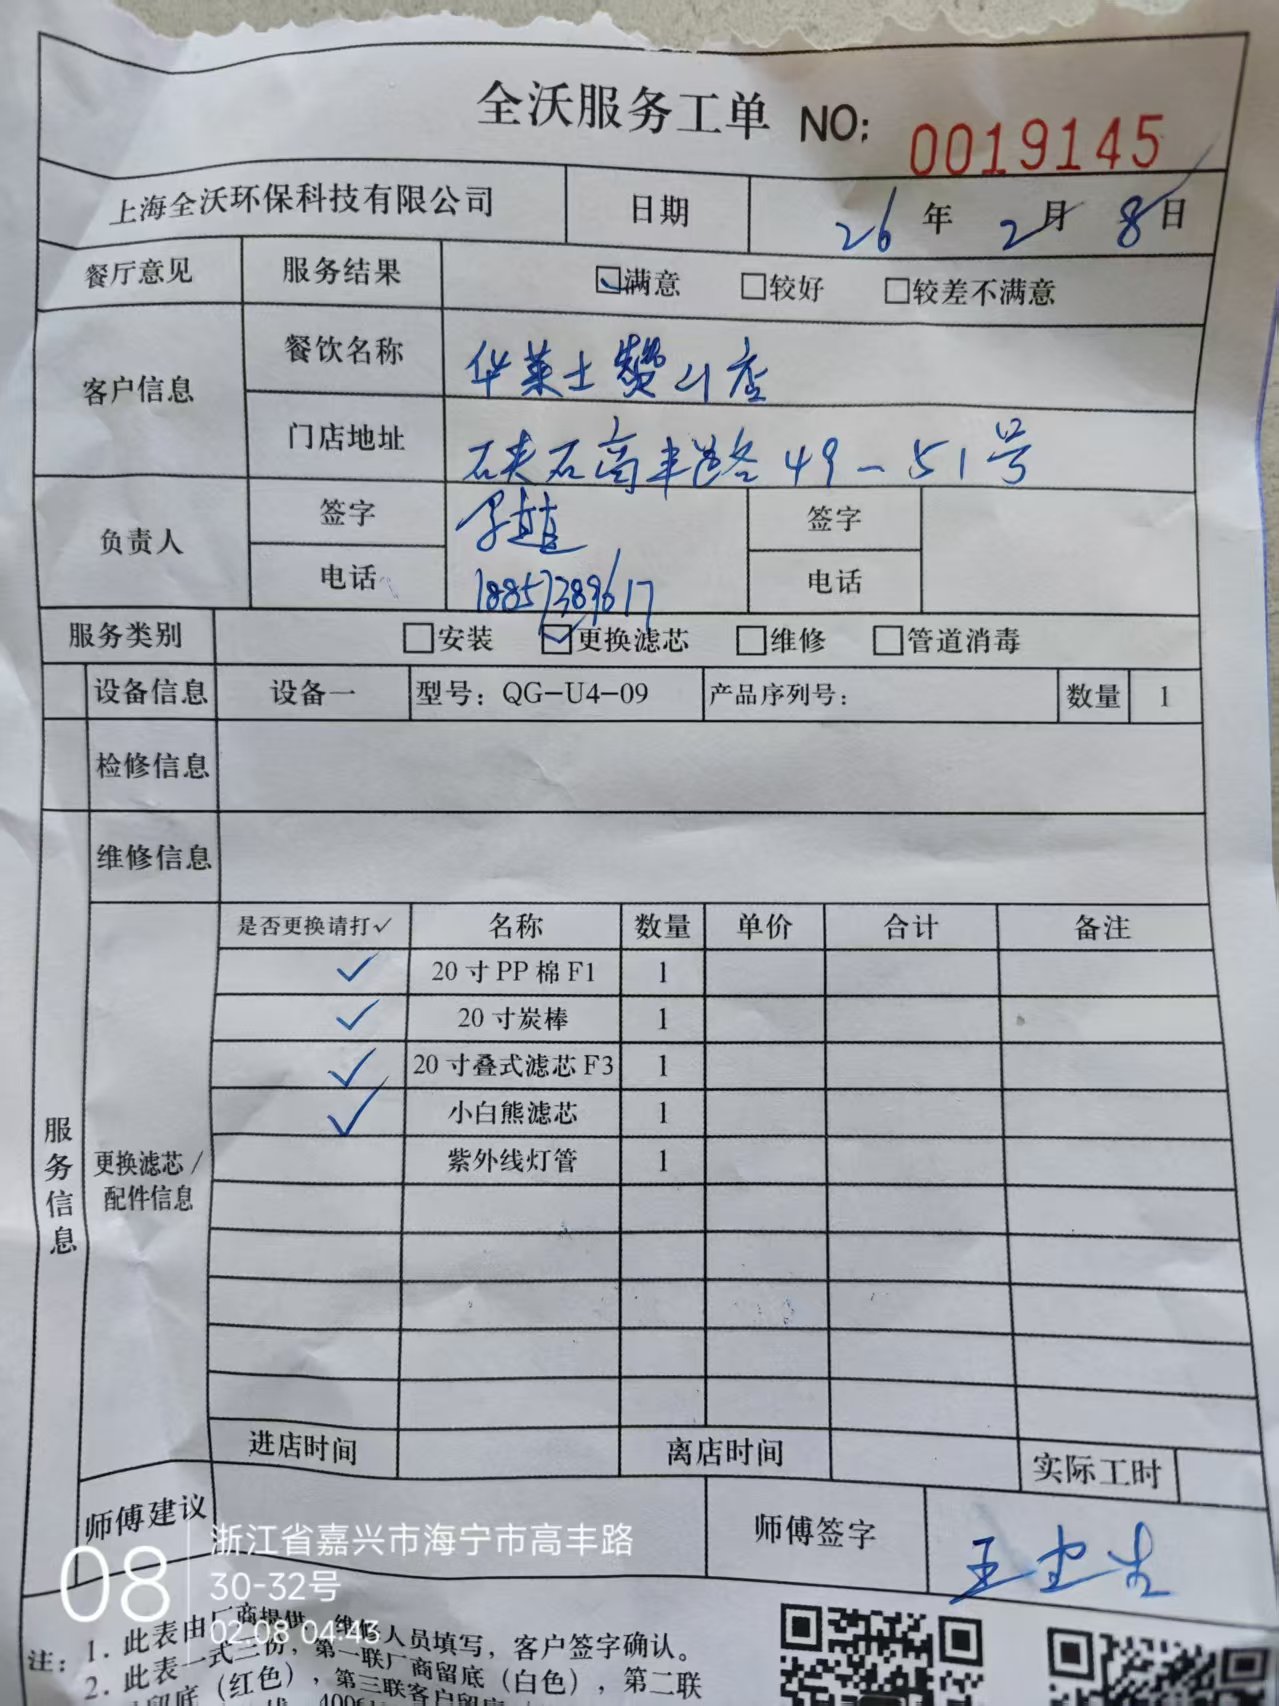 全沃服务工单 NO: 0019145
上海全沃环保科技有限公司 日期 26年 2月 8日
餐厅意见 服务结果 ☑满意 □较好 □较差不满意
客户信息 餐饮名称 华莱士赞山店
门店地址 硖石高丰路49-51号
负责人 签字 签字
电话 18857389617 电话
服务类别 □安装 ☑更换滤芯 □维修 □管道消毒
设备信息 设备一 型号：QG-U4-09 产品序列号： 数量 1
检修信息
维修信息
是否更换请打✓ 名称 数量 单价 合计 备注
✓ 20寸PP棉F1 1
✓ 20寸炭棒 1
✓ 20寸叠式滤芯F3 1
✓ 小白熊滤芯 1
紫外线灯管 1
服务信息
更换滤芯/
配件信息
进店时间 离店时间 实际工时
师傅建议 师傅签字 王
08 浙江省嘉兴市海宁市高丰路
30-32号
02.08 04:43
注：1. 此表由厂商提供，维修人员填写，客户签字确认。
2. 此表一式三份，第一联厂商留底（白色），第二联
留底（红色），第三联客户留底